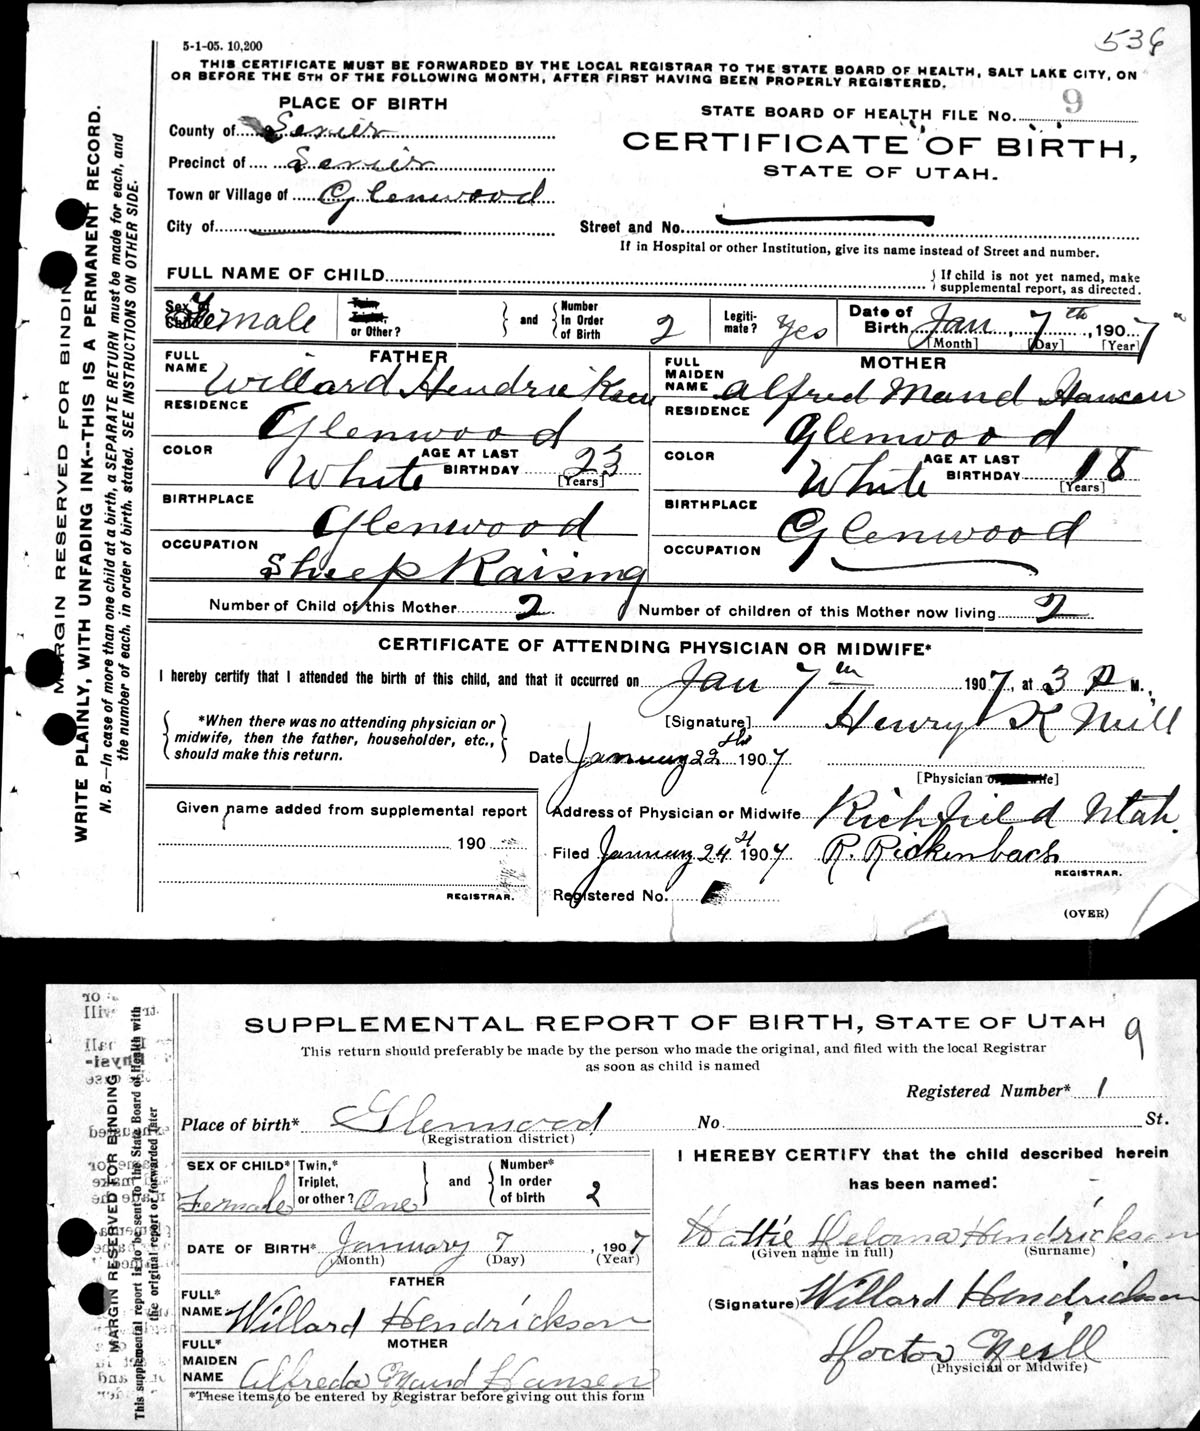 5-1-05. 10,200
536
THIS CERTIFICATE MUST BE FORWARDED BY THE LOCAL REGISTRAR TO THE STATE BOARD OF HEALTH, SALT LAKE CITY, ON
OR BEFORE THE 5TH OF THE FOLLOWING MONTH, AFTER FIRST HAVING BEEN PROPERLY REGISTERED.
PLACE OF BIRTH
County of Sevier
Precinct of Sevier
Town or Village of Glenwood
City of
STATE BOARD OF HEALTH FILE No. 9
CERTIFICATE OF BIRTH,
STATE OF UTAH.
Street and No.
If in Hospital or other Institution, give its name instead of Street and number.
FULL NAME OF CHILD
If child is not yet named, make
supplemental report, as directed.
Sex of Child Female
Twin, Triplet, or Other? and Number In Order of Birth 2
Legiti-mate? Yes
Date of Birth Jan 7th, 1907
[Month] [Day] [Year]
FATHER
FULL NAME Willard Hendricksen
RESIDENCE Glenwood
COLOR White AGE AT LAST BIRTHDAY 23
[Years]
BIRTHPLACE Glenwood
OCCUPATION Sheep Raising
MOTHER
FULL MAIDEN NAME Alfred Maud Hansen
RESIDENCE Glenwood
COLOR White AGE AT LAST BIRTHDAY 18
[Years]
BIRTHPLACE Glenwood
OCCUPATION
Number of Child of this Mother 2 Number of children of this Mother now living 2
CERTIFICATE OF ATTENDING PHYSICIAN OR MIDWIFE*
I hereby certify that I attended the birth of this child, and that it occurred on Jan 7th 1907, at 3 P M.,
*When there was no attending physician or
midwife, then the father, householder, etc.,
should make this return.
[Signature] Henry K Neill
Date January 22 1907
[Physician or Midwife]
Given name added from supplemental report
190
REGISTRAR.
Address of Physician or Midwife Richfield Utah.
Filed January 24 1907 R. Rickenbach
REGISTRAR.
Registered No. 1
(OVER)
MARGIN RESERVED FOR BINDING
WRITE PLAINLY, WITH UNFADING INK--THIS IS A PERMANENT RECORD.
N. B.—In case of more than one child at a birth, a SEPARATE RETURN must be made for each, and
the number of each, in order of birth, stated. SEE INSTRUCTIONS ON OTHER SIDE.
SUPPLEMENTAL REPORT OF BIRTH, STATE OF UTAH 9
This return should preferably be made by the person who made the original, and filed with the local Registrar
as soon as child is named
Registered Number* 1
Place of birth* Glenwood No. St.
(Registration district)
SEX OF CHILD* Female
Twin,* Triplet, or other? One and Number* In order of birth 2
DATE OF BIRTH* January 7, 1907
(Month) (Day) (Year)
FATHER
FULL* NAME Willard Hendrickson
MOTHER
FULL* MAIDEN NAME Alfreda Maud Hansen
*These items to be entered by Registrar before giving out this form
I HEREBY CERTIFY that the child described herein
has been named:
Hattie Delorna Hendrickson
(Given name in full) (Surname)
(Signature) Willard Hendrickson
Doctor Neill
(Physician or Midwife)
MARGIN RESERVED FOR BINDING
This supplemental report is to be sent to the State Board of Health with
the original report or forwarded later